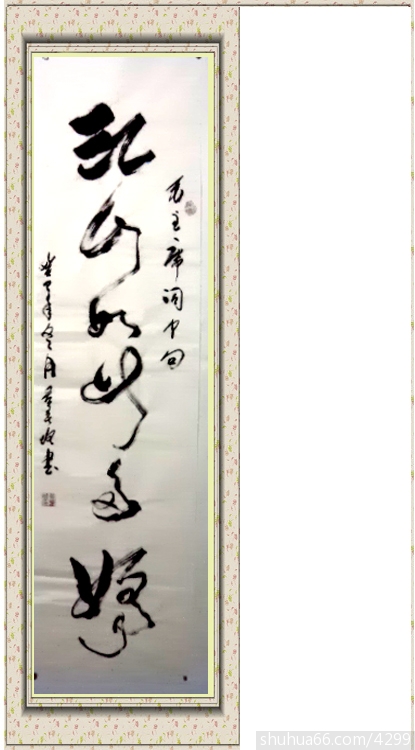 毛主席词中句
江山如此多娇
年冬月
书
shuhua66.com/4299